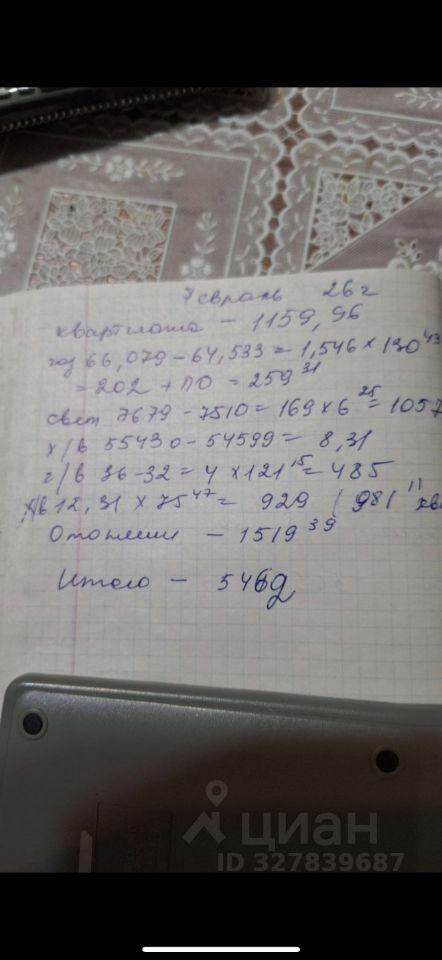 Февраль 26 г
Квартплата – 1159,96
газ 66,079 – 64,533 = 1,546 × 130 43
= 202 + ПО = 259 31
свет 7679 – 7510 = 169 × 6 25 = 1057
х/в 55430 – 54599 = 8,31
г/в 36 – 32 = 4 × 121 15 = 485
х/в 12,31 × 75 47 = 929 (981 11
Отопление – 1519 39
Итого – 5469
циан
ID 327839687